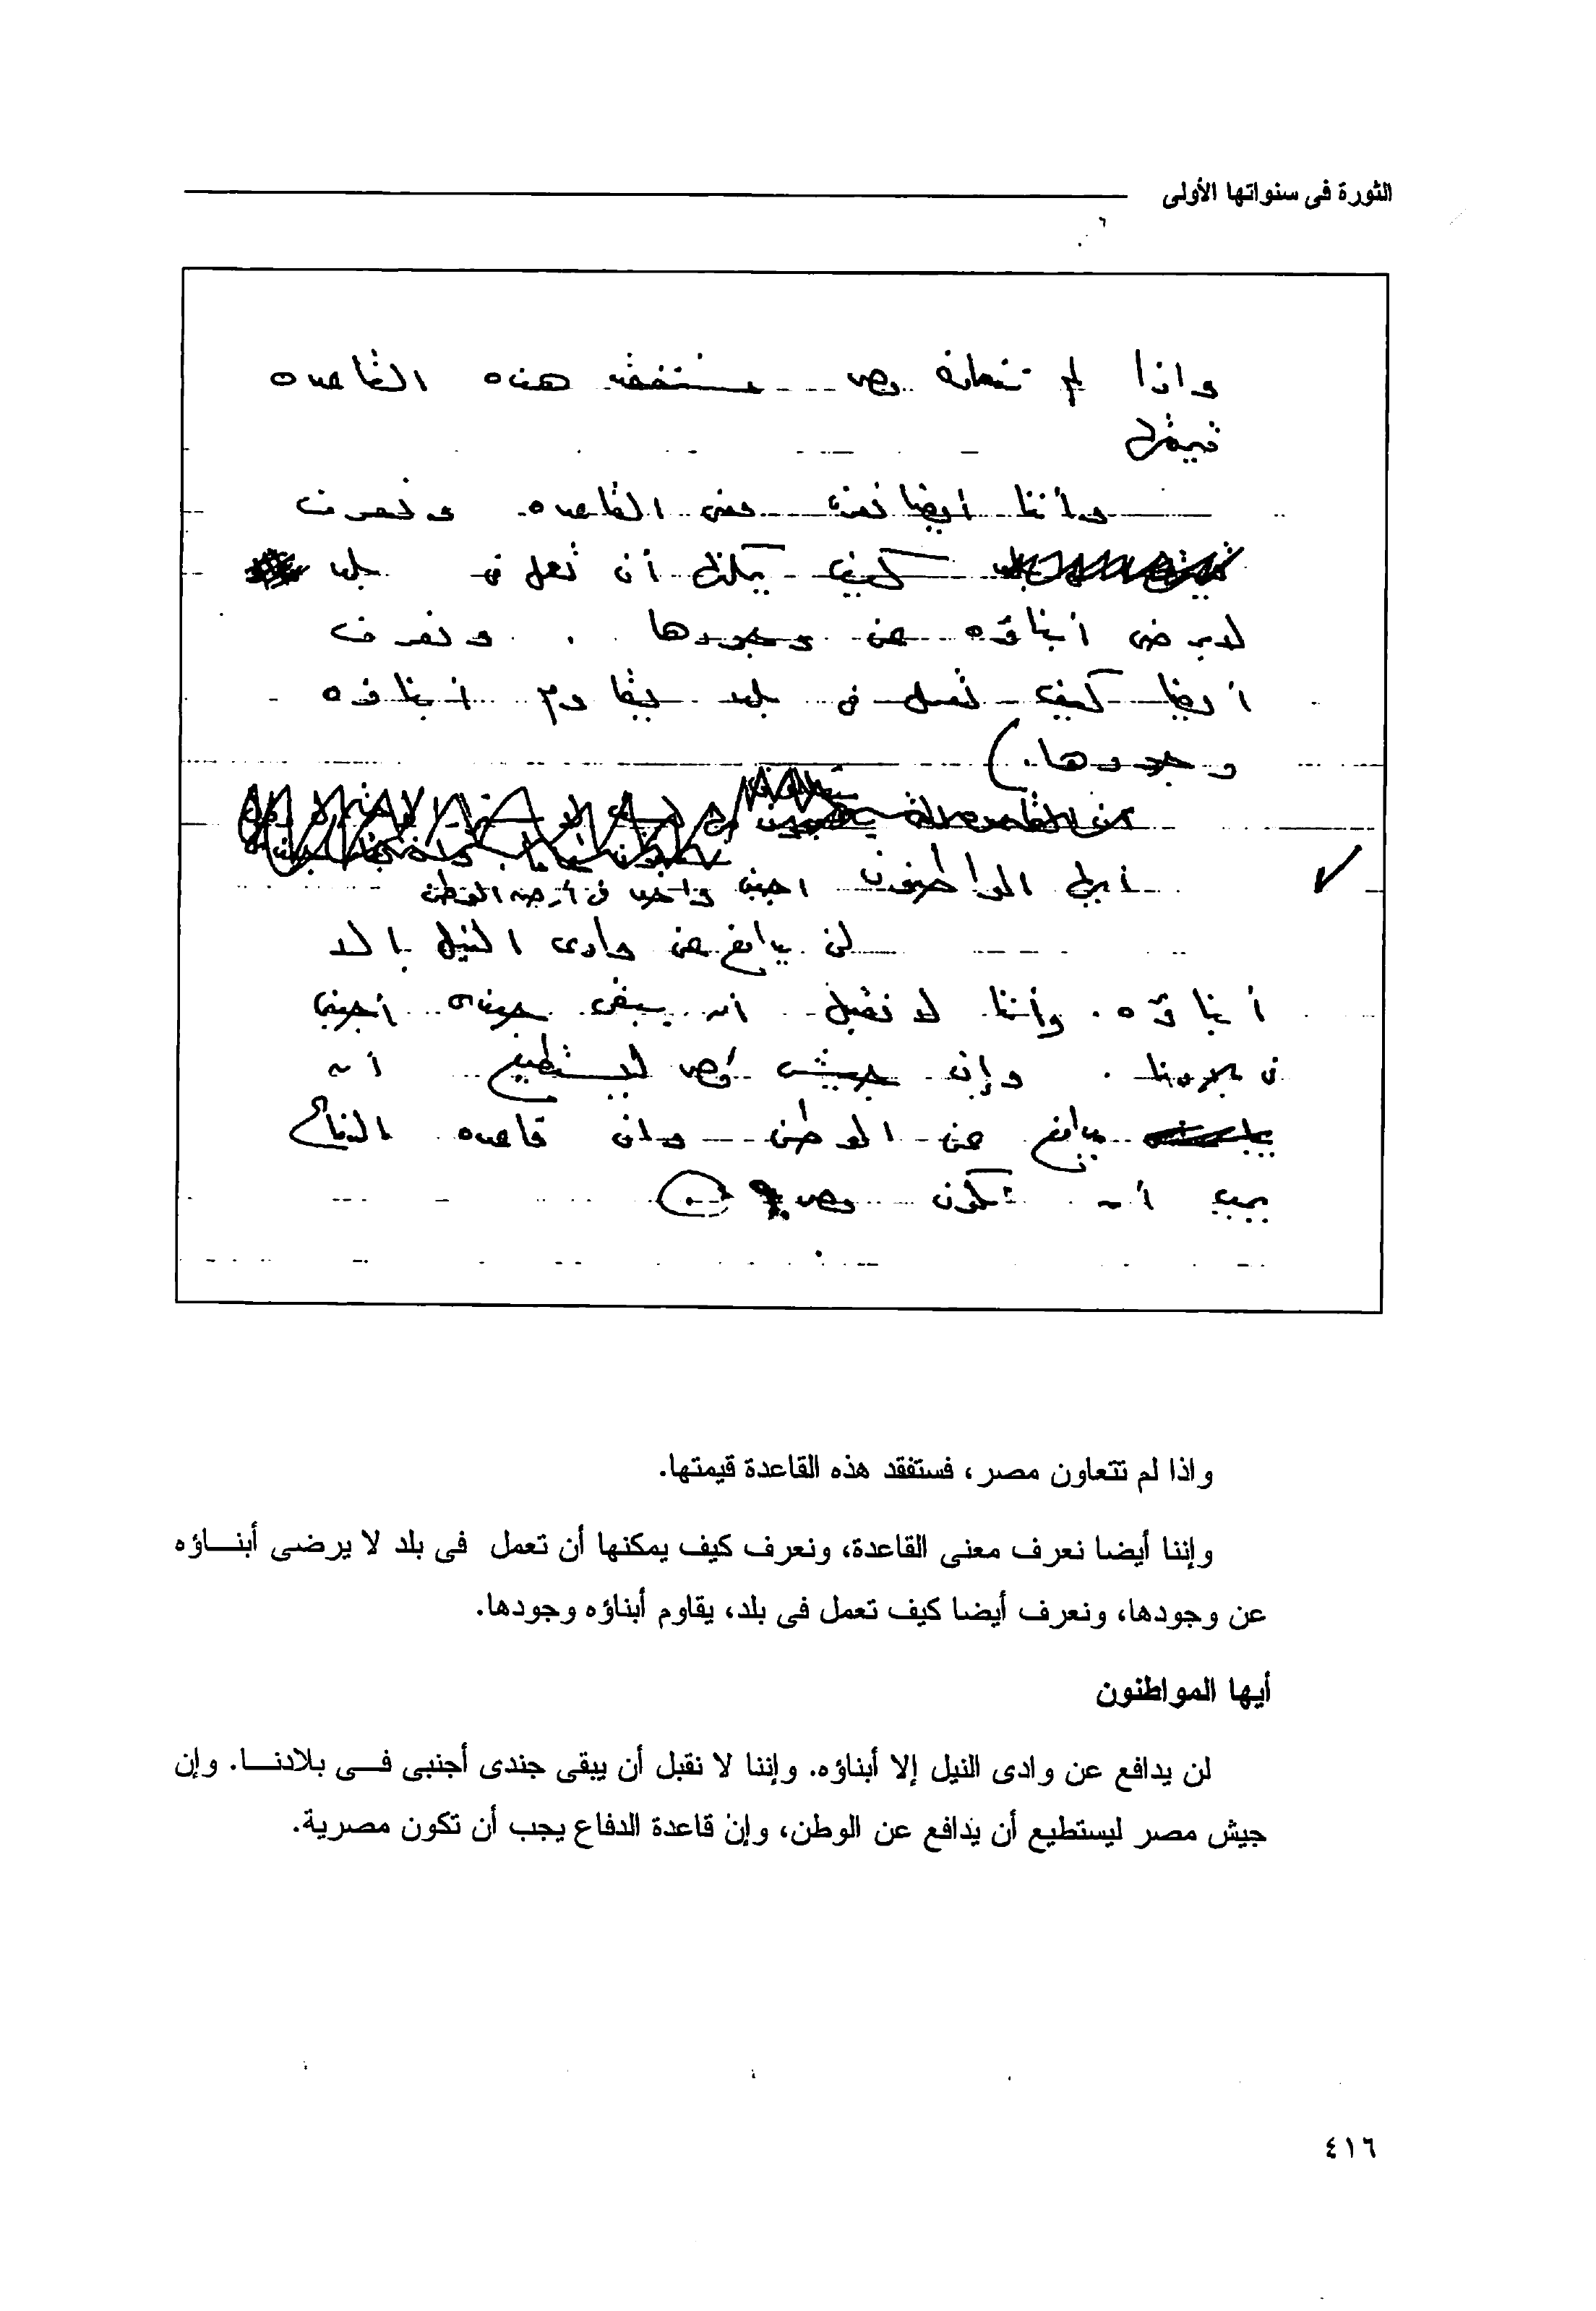 الثورة فى سنواتها الأولى
واذا لم تتعاون مصر ستفقد هذه القاعده
قيمتها
وأننا ايضا نعرف معنى القاعده. ونعرف
كيف يمكنها أن تعمل فى بلد
لا يرضى أبناؤه عن وجودها . ونعرف
أيضا كيف تعمل فى بلد يقاوم أبناؤه
وجودها.)
أيها المواطنون اجنبى واحد فى أرض الوطن
لن يدافع عن وادى النيل إلا
أبناؤه. وأننا لا نقبل أن يبقى جندى أجنبى
فى بلادنا . وإن جيش مصر ليستطيع أن
يدافع عن الوطن وان قاعده الدفاع
يجب أن تكون
واذا لم تتعاون مصر، فستفقد هذه القاعدة قيمتها.
وإننا أيضا نعرف معنى القاعدة، ونعرف كيف يمكنها أن تعمل فى بلد لا يرضى أبنـــاؤه
عن وجودها، ونعرف أيضا كيف تعمل فى بلد، يقاوم أبناؤه وجودها.
أيها المواطنون
لن يدافع عن وادى النيل إلا أبناؤه. وإننا لا نقبل أن يبقى جندى أجنبى فـــى بلادنـــا. وإن
جيش مصر ليستطيع أن يدافع عن الوطن، وإن قاعدة الدفاع يجب أن تكون مصرية.
٤١٦